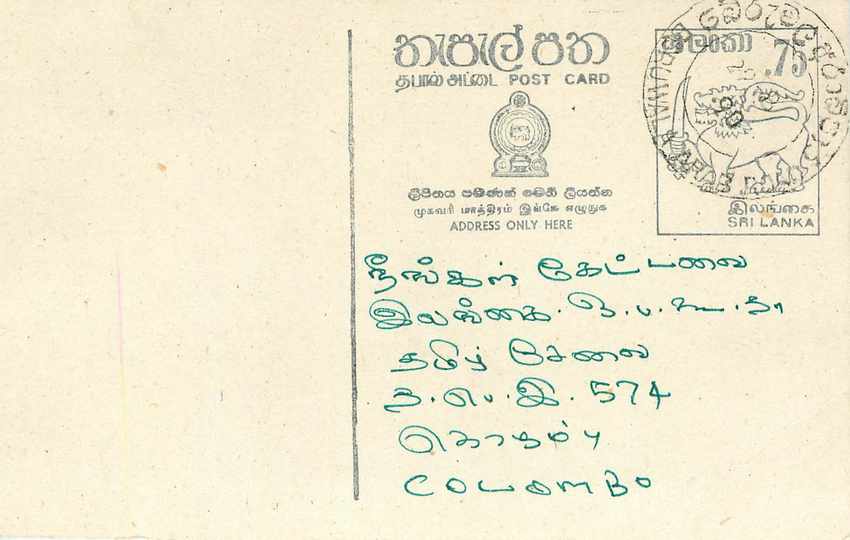 තැපැල් පත
தபால் அட்டை POST CARD
ලිපිනය පමණක් මෙහි ලියන්න
முகவரி மாத்திரம் இங்கே எழுதுக
ADDRESS ONLY HERE
ශ්‍රී ලංකා
.75
இலங்கை
SRI LANKA
நீங்கள் கேட்டவை
இலங்கை. ஒ. ப. கூ. தா
தமிழ் சேவை
த. பெ. இ. 574
கொழும்பு
COLOMBO